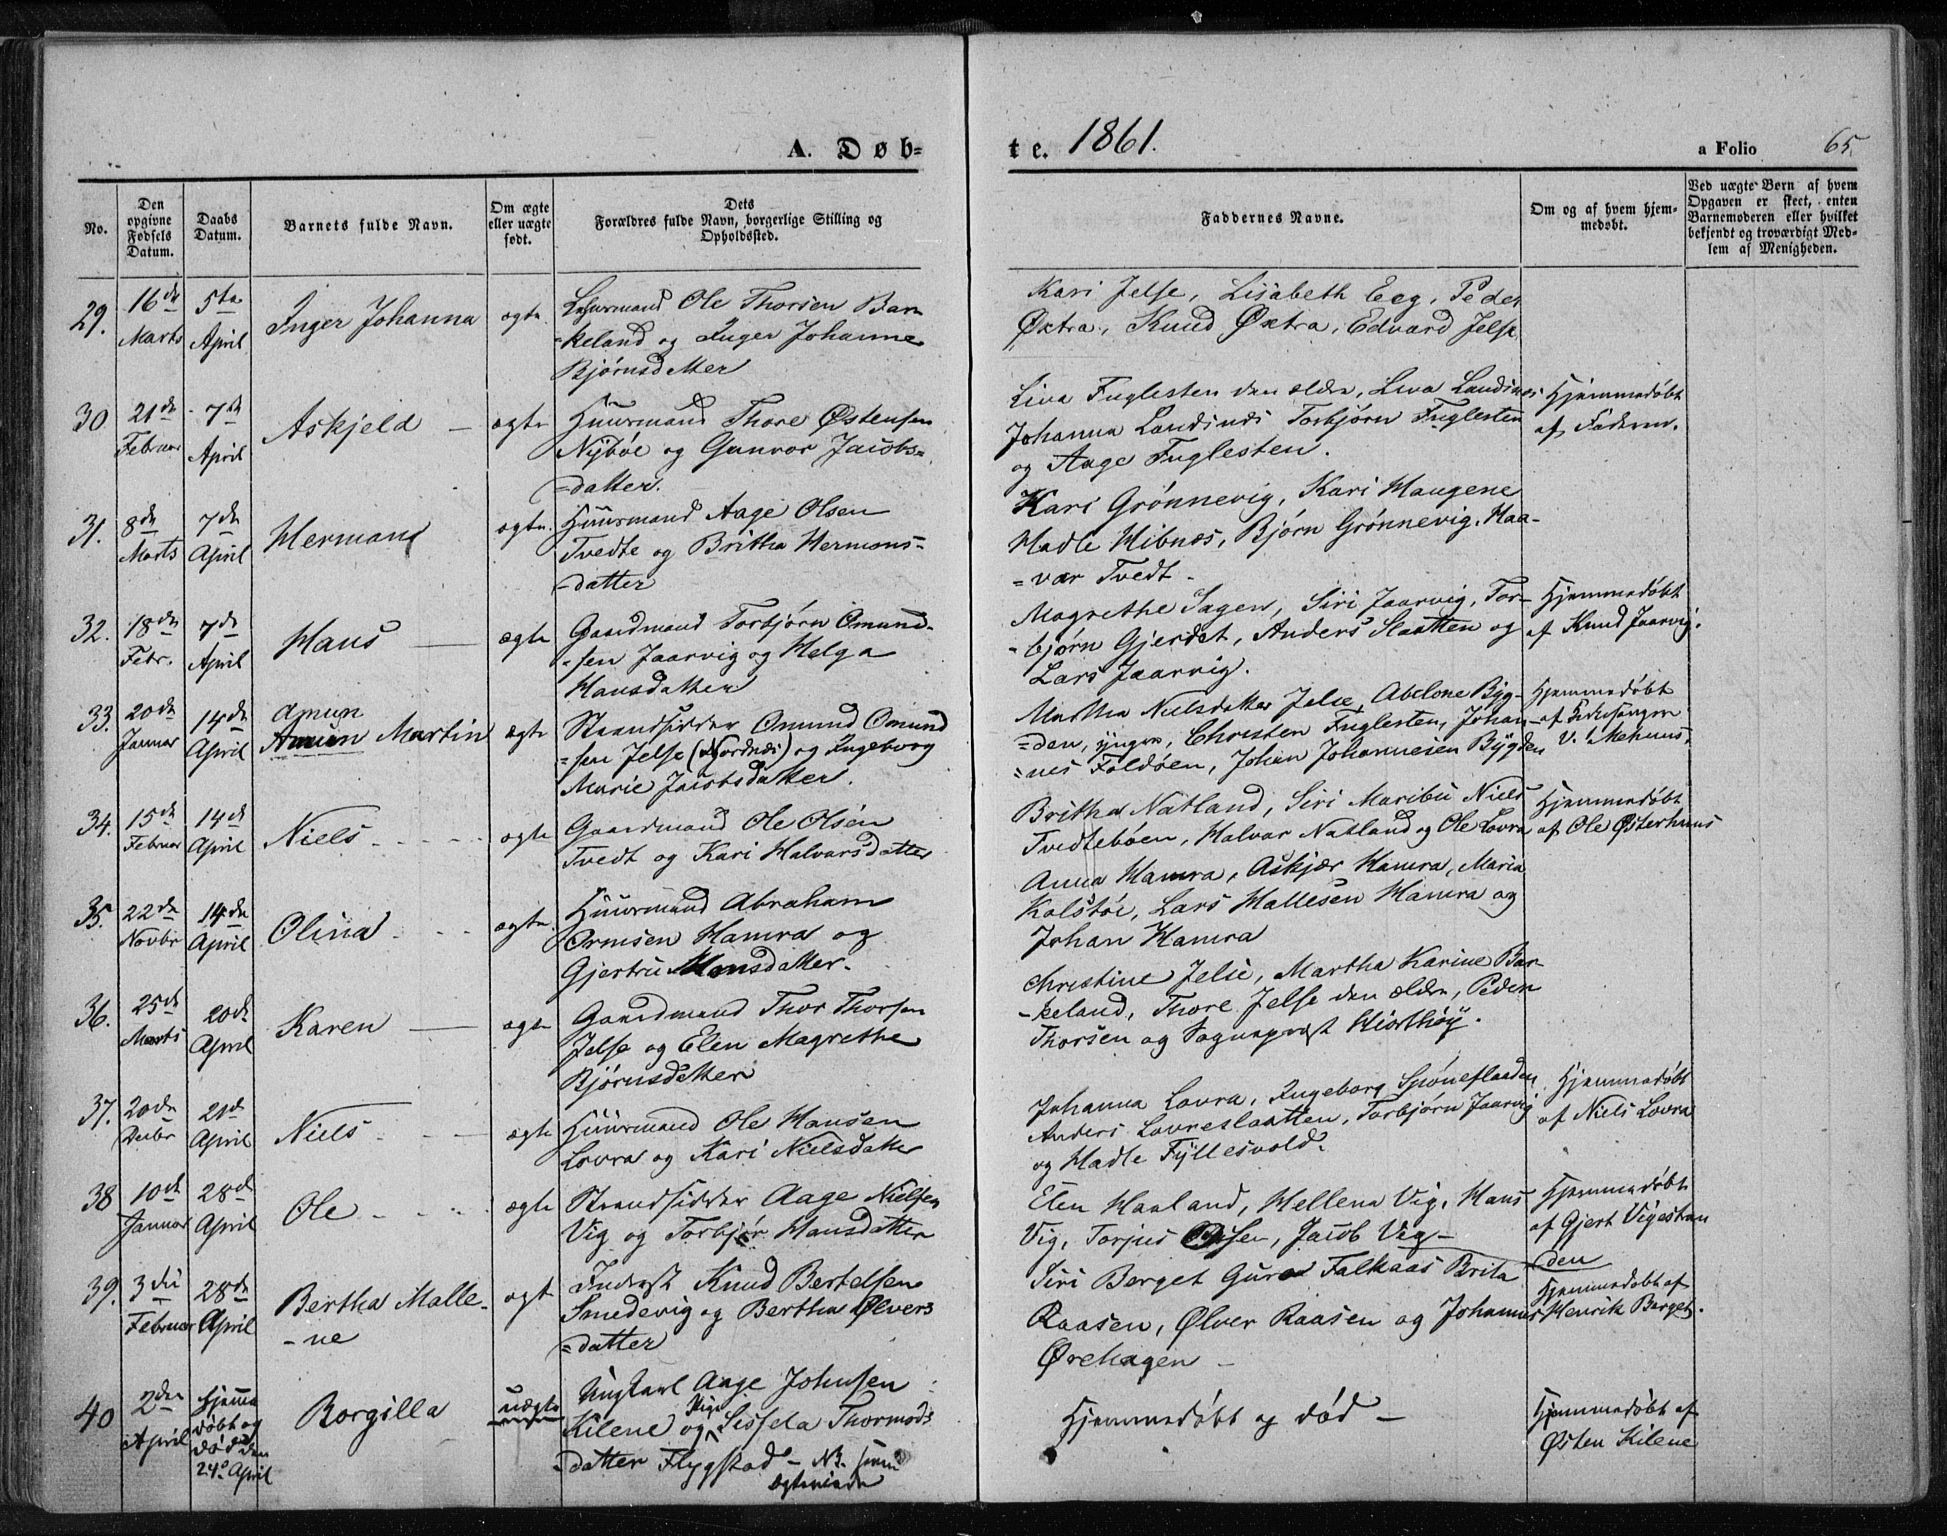 A. Døb-
te. 1861.
a Folio 65.
No.
Den opgivne Fødsels Datum.
Daabs Datum.
Barnets fulde Navn.
Om ægte eller uægte født.
Dets Forældres fulde Navn, borgerlige Stilling og Opholdssted.
Faddernes Navne.
Om og af hvem hjemmedøbt.
Ved uægte Børn af hvem Opgaven er skeet, enten Barnemoderen eller hvilket bekjendt og troværdigt Medlem af Menigheden.
29. 16de Marts
5te April
Inger Johanna
ægte
Ole Thorsen Bar-
=keland og Inger Johanne
Bjørnsdatter
Kari Jelse, Lisabeth Eeg, Peder
Øxtra, Knud Øxtra, Edvard Jelse
30 21de Februar
7de April
Askjeld
ægte
Huusmand Thore Østensen
Nÿbøe og Gunvor Jacobs=
=datter.
Liva Fuglesten den ældre, Liva Landsnes
Johanna Landsnes Torbjørn Fuglesten
og Aage Fuglesten.
Hjemmedøbt
af Faderen.
31. 8de Marts
7de April
Hermand
ægte.
Huusmand Aage Olsen
Tvedte og Britha Hermans=
=datter
Kari Grønnevig, Kari Haugene
Hadle Hibnes, Bjørn Grønnevig, Haa-
=var Tvedt -
32. 18de Febr.
7de April
Hans
ægte
Gaardmand Torbjørn Omund-
=sen Jaarvig og Helga
Hansdatter
Magrethe Sagen, Siri Jaarvig, Tor-
-bjørn Gjerdet, Anders Slaatten og
Lars Jaarvig.
Hjemmedøbt
af Knud Jaarvig.
33. 20de Januar
14de April
Amun
Amun Martin
ægte
Strandsidder Omund Omund
=sen Jelse (Nordnæs) og Ingeborg
Marie Jacobsdatter.
Martha Nielsdatter Jelse, Abelone Bÿg-
=den, yngre, Christen Fuglesten, Johan-
=nes Foldøen, Johan Johannesen Bÿgden
Hjemmedøbt
af Kirkesanger
V. Mehuus.
34. 15de Februar
14de April
Niels
ægte
Gaardmand Ole Olsen
Tvedt og Kari Halvarsdatter
Britha Natland, Siri Maribu Niels
Tvedtebøen, Halvar Natland og Ole Lovra
Hjemmedøbt
af Ole Østerhuus
35. 22de Novbr
14de April
Olina
ægte.
Huusmand Abraham
Ormsen Hamra og
Gjertru Monsdatter.
Anna Hamra, Askjær Hamra, Maria
Kolstøe, Lars Hallesen Hamra og
Johan Hamra
36. 25de Marts
20de April
Karen
ægte
Gaardmand Thor Thorsen
Jelse og Elen Magrethe
Bjørnsdatter
Christine Jelse, Martha Karine Bar-
-keland, Thore Jelse den ældre, Peder
Thorsen og Sogneprest Hiorthøÿ.
37. 20de Decbr
21de April
Niels
ægte
Huusmand Ole Hansen
Lovra og Kari Nielsdatter
Johanna Lovra, Ingeborg
Anders Lovreslaatten, Torbjørn Jaarvig
og Hadle Fÿllesvold.
Hjemmedøbt
af Niels Lovra
38 10de Januar
28de April
Ole
ægte
Strandsidder Aage Nielsen
Vig og Torbjør Hansdatter
Elen Haaland, Hellena Vig, Hans
Vig, Torjus Olsen, Jacob Vig-
Hjemmedøbt
af Gjert Vigestran
den
39. 3die Februar
28de April
Bertha Malle-
-ne
ægt
Inderst Knud Bertelsen
Smedevig og Bertha Ølvers
=datter
Siri Berget Guro Falkaas Brita
Raasen, Ølver Raasen og Johannes
Ørehagen -
Hjemmedøbt af
Henrik Berget.
40 2den April
Hjemme
døbt og
død den
24de April
Borgilla
uægte
Ungkarl Aage Johnsen
Kilene og Pige Sissela Thormods
=datter Flÿgstad - NB.
Hjemmedøbt og død -
Hjemmedøbt af
Østen Kilene